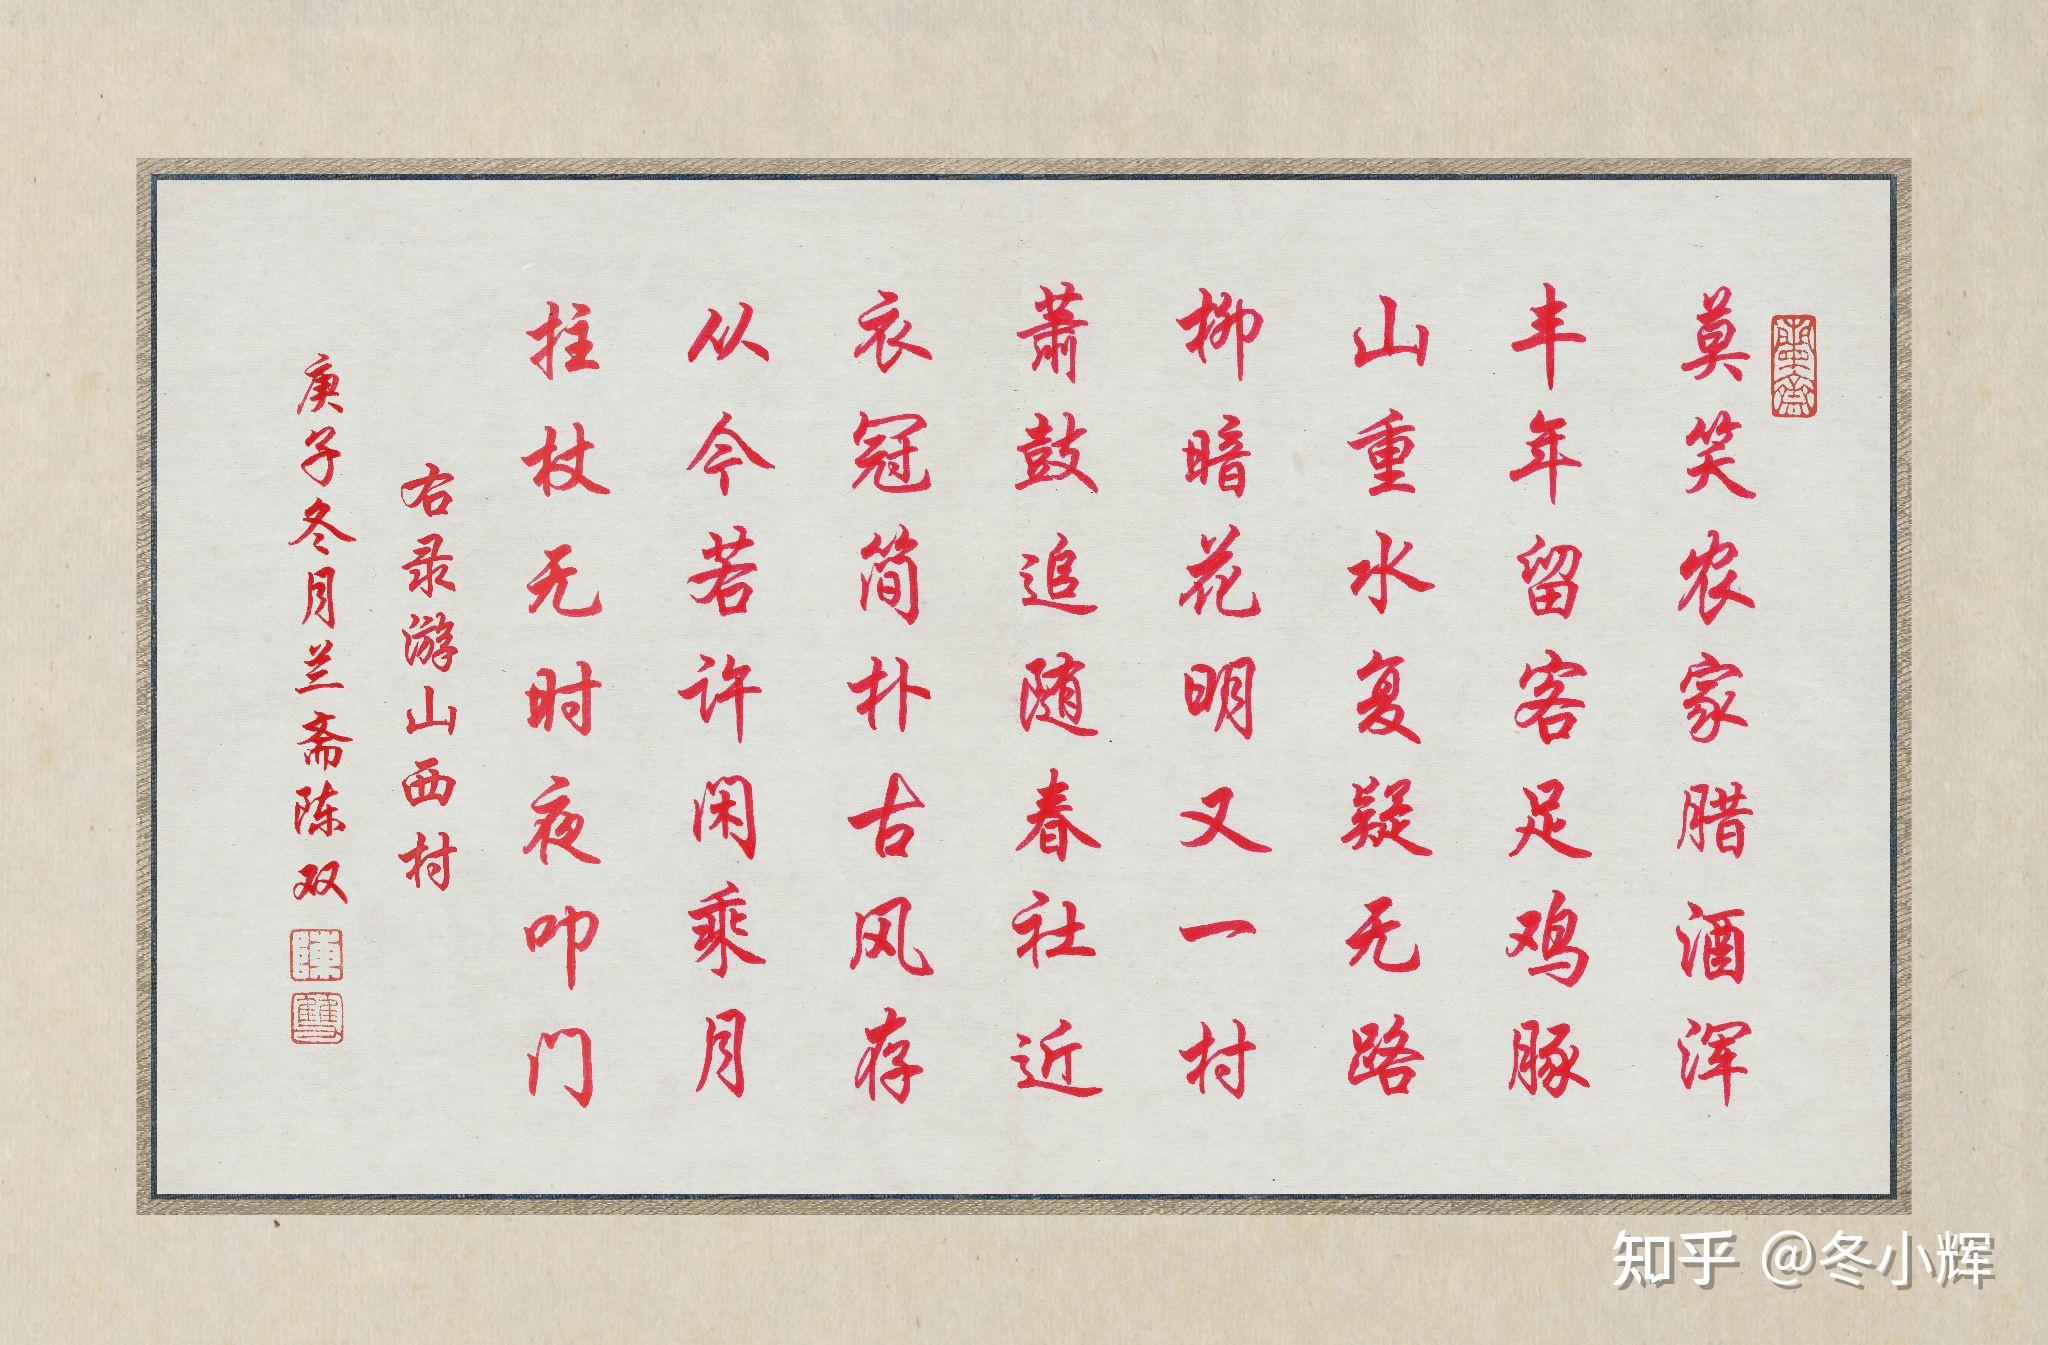 莫笑农家腊酒浑
丰年留客足鸡豚
山重水复疑无路
柳暗花明又一村
蕭鼓追随春社近
衣冠简朴古风存
从今若许闲乘月
拄杖无时夜叩门
右录游山西村
庚子冬月兰斋陈双
陳
雙
知乎 @冬小辉